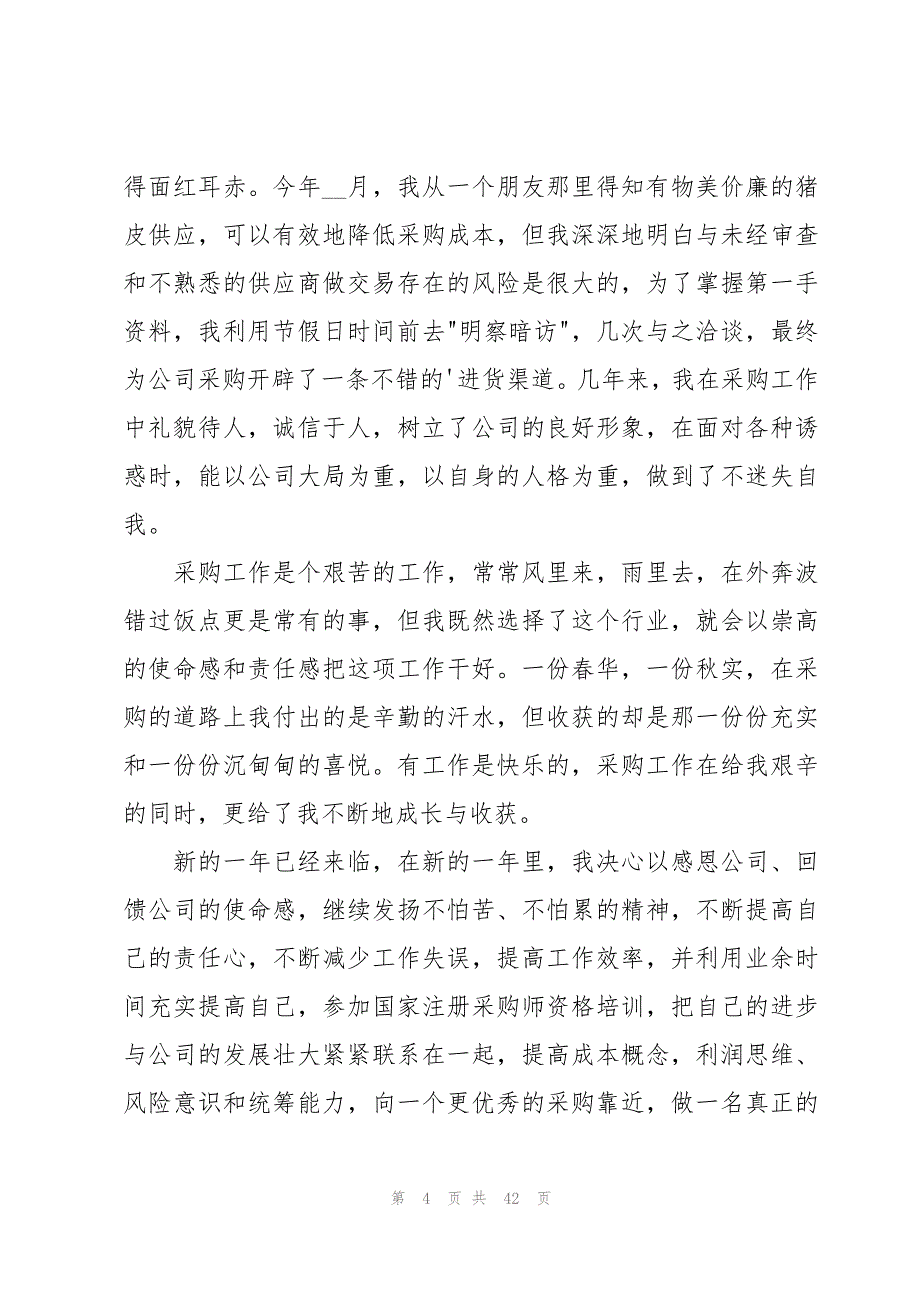 得面红耳赤。今年__月，我从一个朋友那里得知有物美价廉的猪
皮供应，可以有效地降低采购成本，但我深深地明白与未经审查
和不熟悉的供应商做交易存在的风险是很大的，为了掌握第一手
资料，我利用节假日时间前去"明察暗访"，几次与之洽谈，最终
为公司采购开辟了一条不错的'进货渠道。几年来，我在采购工作
中礼貌待人，诚信于人，树立了公司的良好形象，在面对各种诱
惑时，能以公司大局为重，以自身的人格为重，做到了不迷失自
我。
采购工作是个艰苦的工作，常常风里来，雨里去，在外奔波
错过饭点更是常有的事，但我既然选择了这个行业，就会以崇高
的使命感和责任感把这项工作干好。一份春华，一份秋实，在采
购的道路上我付出的是辛勤的汗水，但收获的却是那一份份充实
和一份份沉甸甸的喜悦。有工作是快乐的，采购工作在给我艰辛
的同时，更给了我不断地成长与收获。
新的一年已经来临，在新的一年里，我决心以感恩公司、回
馈公司的使命感，继续发扬不怕苦、不怕累的精神，不断提高自
己的责任心，不断减少工作失误，提高工作效率，并利用业余时
间充实提高自己，参加国家注册采购师资格培训，把自己的进步
与公司的发展壮大紧紧联系在一起，提高成本概念，利润思维、
风险意识和统筹能力，向一个更优秀的采购靠近，做一名真正的
第 4 页 共 42 页